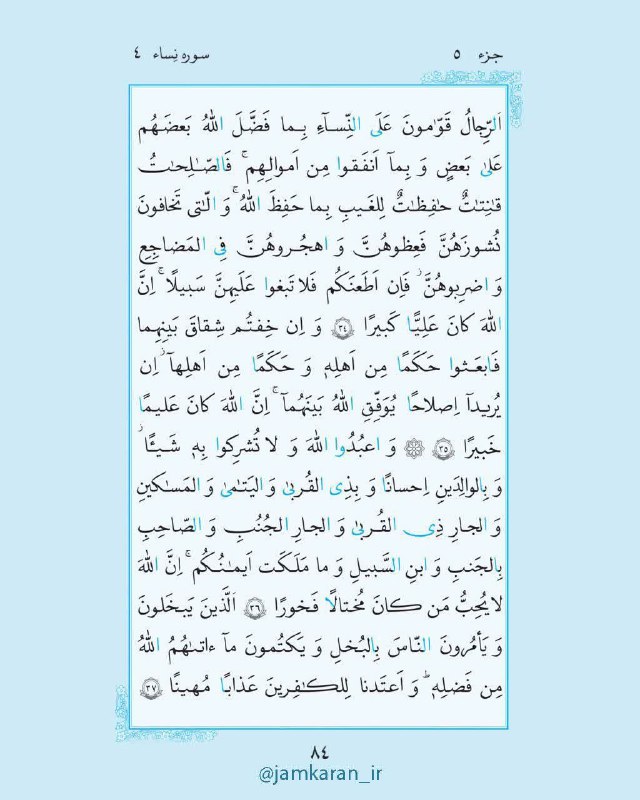 جزء ۵
سوره نِساء ۴
اَلرِّجالُ قَوّٰمونَ عَلَى النِّسآءِ بِما فَضَّلَ اللهُ بَعضَهُم
عَلىٰ بَعضٍ وَ بِمآ اَنفَقوا مِن اَموالِهِم ۚ فَالصّٰلِحٰتُ
قٰنِتٰتٌ حٰفِظٰتٌ لِلغَيبِ بِما حَفِظَ اللهُ ۚ وَ الّٰتى تَخافونَ
نُشوزَهُنَّ فَعِظوهُنَّ وَ اهجُروهُنَّ فِى المَضاجِعِ
وَ اضرِبوهُنَّ ۖ فَاِن اَطَعنَكُم فَلا تَبغوا عَلَيهِنَّ سَبيلًا ۗ اِنَّ
اللهَ كانَ عَلِيًّا كَبيرًا ﴿۳۴﴾ وَ اِن خِفتُم شِقاقَ بَينِهِما
فَابعَثوا حَكَمًا مِن اَهلِهٖ وَ حَكَمًا مِن اَهلِهآ ۖ اِن
يُريدآ اِصلاحًا يُوَفِّقِ اللهُ بَينَهُمآ ۗ اِنَّ اللهَ كانَ عَليمًا
خَبيرًا ﴿۳۵﴾ ۞ وَ اعبُدُوا اللهَ وَ لا تُشرِكوا بِهٖ شَيـًٔا ۖ
وَ بِالوالِدَينِ اِحسانًا وَ بِذِى القُربىٰ وَ اليَتٰمىٰ وَ المَسٰكينِ
وَ الجارِ ذِى القُربىٰ وَ الجارِ الجُنُبِ وَ الصّاحِبِ
بِالجَنبِ وَ ابنِ السَّبيلِ وَ ما مَلَكَت اَيمٰنُكُم ۗ اِنَّ اللهَ
لا يُحِبُّ مَن كانَ مُختالًا فَخورًا ﴿۳۶﴾ اَلَّذينَ يَبخَلونَ
وَ يَأمُرونَ النّاسَ بِالبُخلِ وَ يَكتُمونَ مآ ءاتىٰهُمُ اللهُ
مِن فَضلِهٖ ۗ وَ اَعتَدنا لِلكٰفِرينَ عَذابًا مُهينًا ﴿۳۷﴾
۸۴
@jamkaran_ir